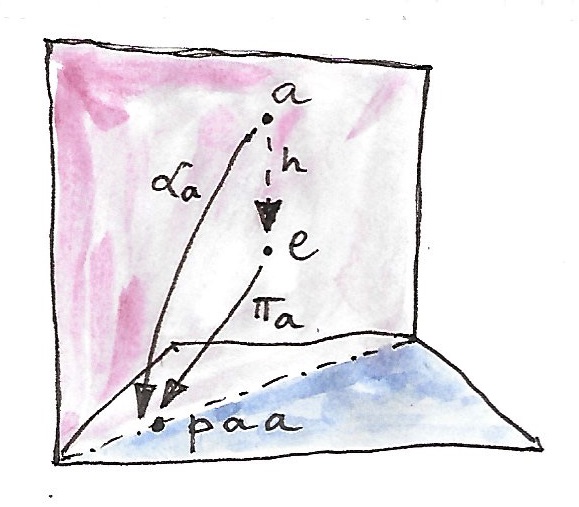 a
αa
h
e
πa
paa